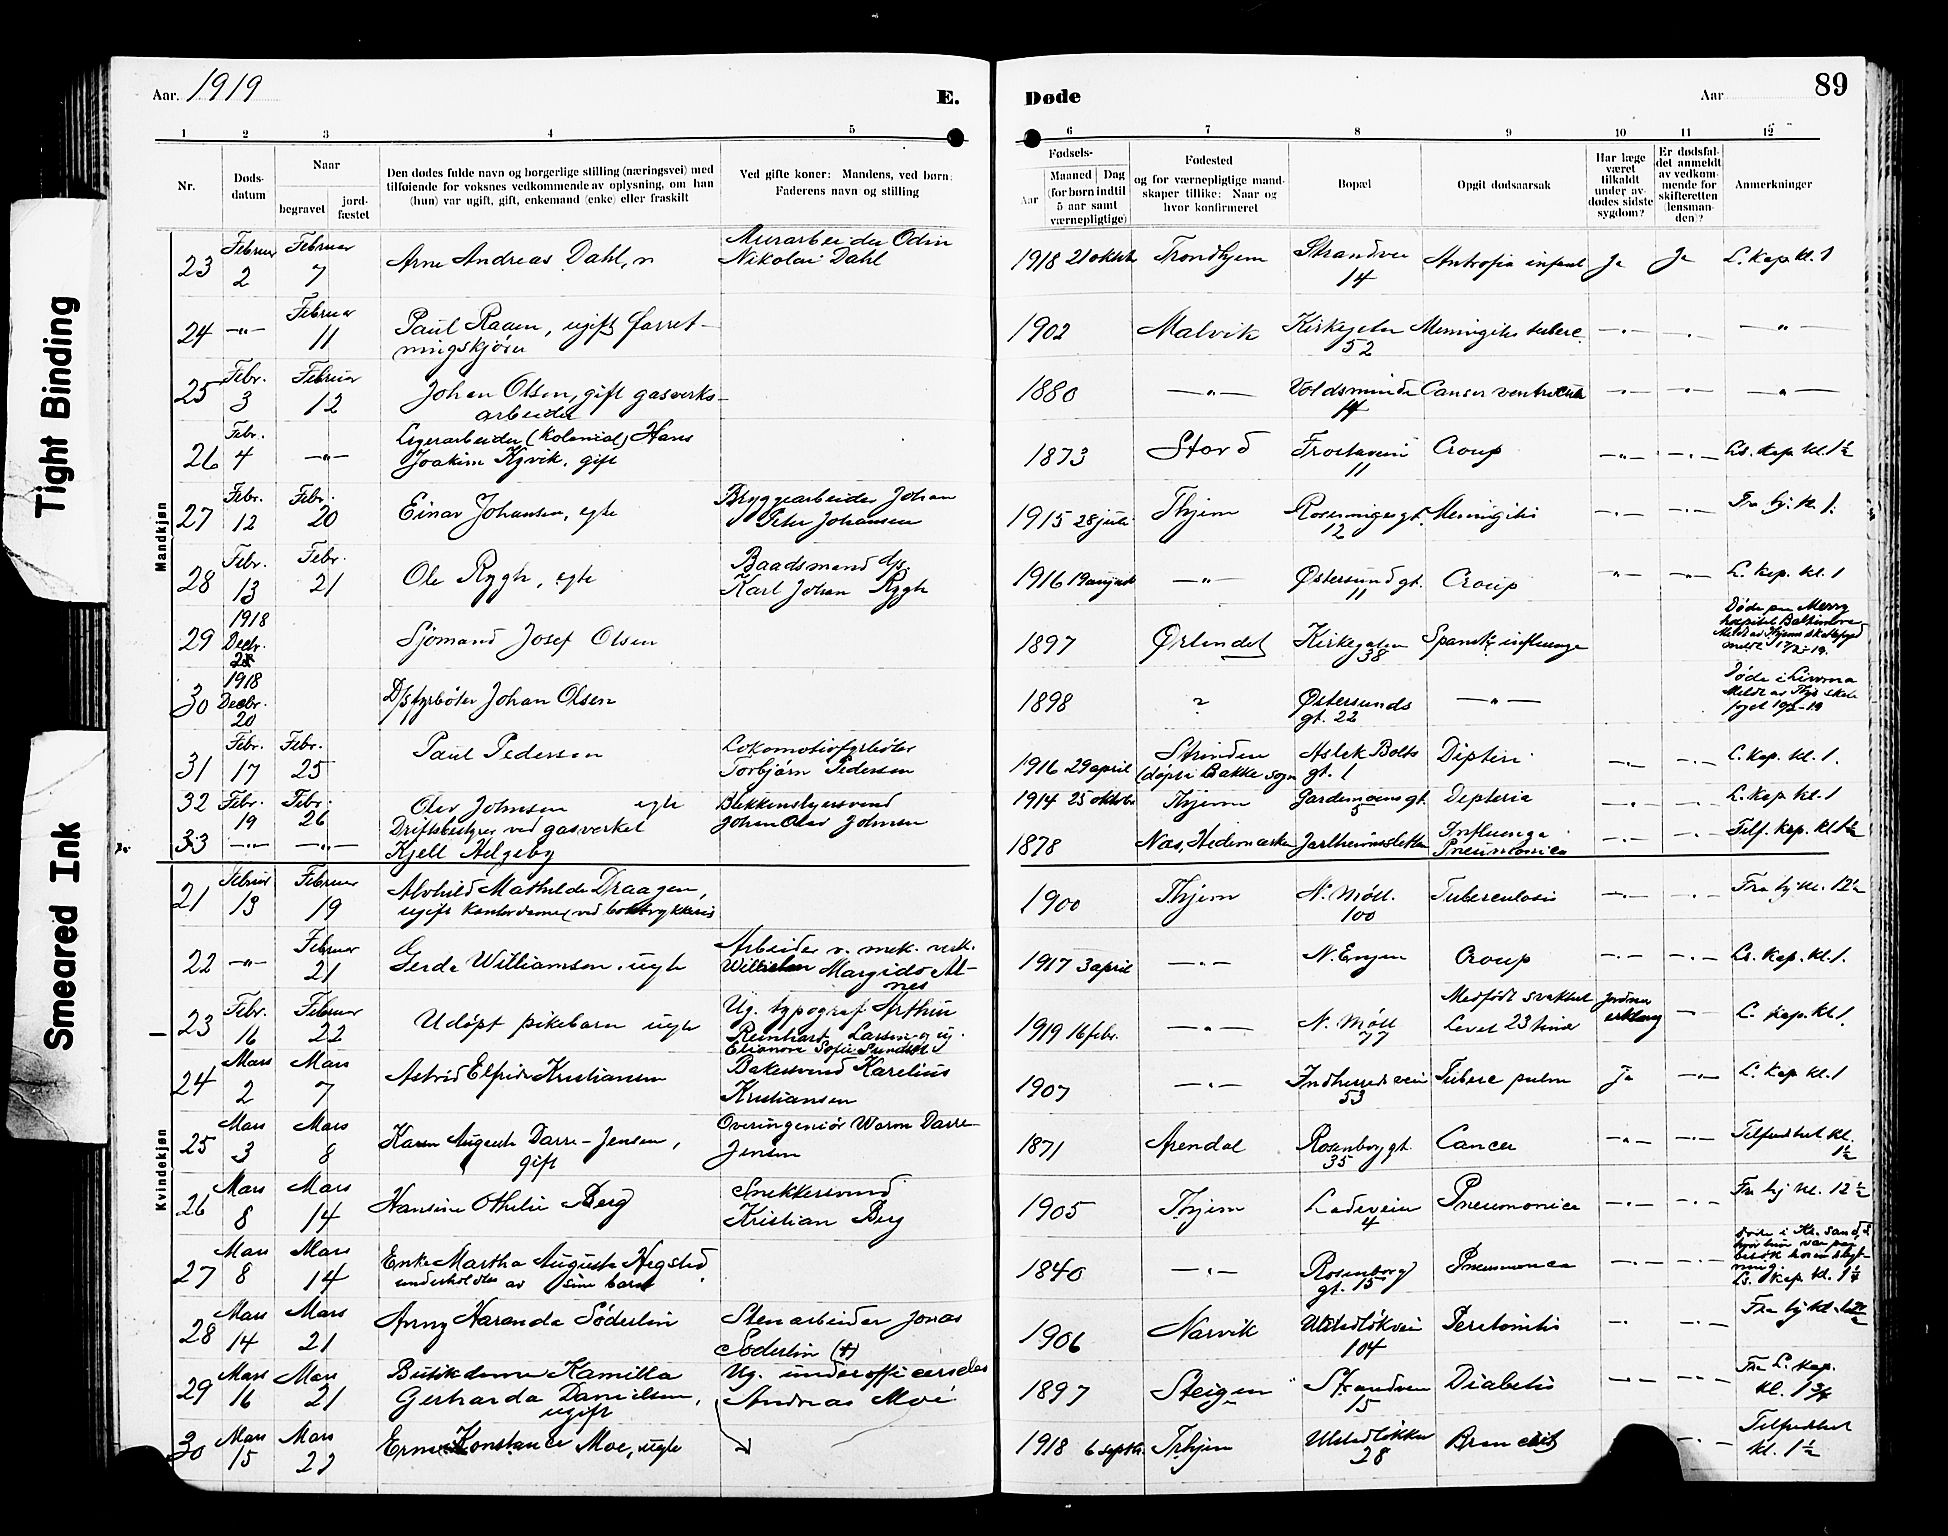 Tight Binding
Smeared Ink
Aar. 1919
E.
Døde
Aar
89
1 2 3 4 5 6 7 8 9 10 11 12
Nr.
Døds-
datum
Naar
begravet
jord-
fæstet
Den dødes fulde navn og borgerlige stilling (næringsvei) med
tilføiende for voksnes vedkommende av oplysning, om han
(hun) var ugift, gift, enkemand (enke) eller fraskilt
Ved gifte koner: Mandens, ved børn:
Faderens navn og stilling
Fødsels-
Aar
Maaned Dag
(for børn indtil
5 aar samt
værnepligtige)
Fødested
og for værnepligtige mand-
skaper tillike: Naar og
hvor konfirmeret
Bopæl
Opgit dødsaarsak
Har læge
været
tilkaldt
under av-
dødes sidste
sygdom?
Er dødsfal-
det anmeldt
av vedkom-
mende for
skifteretten
(lensman-
den)?
Anmerkninger
Mandkjøn
23 Februar 2 Februar 7 Arne Andreas Dahl, Murarbeider Odin
Nikolai Dahl 1918 21 oktob Trondhjem Strandvei 14 Ja Ja L. kap. kl. 1
24 -"- Februar 11 Paul Raaen, ugift forret-
ningskjører 1902 Malvik Kirkegaten 52 Meningitis tuberc. -"- -"- -"-
25 Febr. 3 Februar 12 Johan Olsen, gift gasverks-
arbeider 1880 -"- Voldsminde 14 Cancer ventriculi -"- -"- -"-
26 Febr. 4 -"- Lagerarbeider (kolonial) Hans
Joakim Kyvik, gift 1873 Stord Frostaveien 11 Croup -"- -"- Ls. kap. kl. 1½
27 Febr. 12 Febr. 20 Einar Johansen, egte Bryggearbeider Johan
Peter Johansen 1915 28 juli Thjem 12 Meningitis -"- -"- Fra hj. kl. 1.
28 Febr. 13 Febr. 21 Ole Rygh, egte Baadsmand d/s.
Karl Johan Rygh 1916 19 august -"- Østersundsgt. 11 Croup -"- -"- L. kap. kl. 1
29 1918 Decbr. Sjømand Josef Olsen 1897 Ørlandet Kirkegaten 38 Spansk influenza Døde paa Mercy
hospital Baltimore
30 1918 Decbr. 20 D/s fyrbøter Johan Olsen 1898 ? Østersunds
gt. 22 -"- Døde i
31 Febr. 17 Febr. 25 Paul Pedersen Lokomotivfyrbøter
Torbjørn Pedersen 1916 29 april Strinden
(døpt i Bakke sogn Aslak Bolts
gt. 1 Difteri -"- -"- L. kap. kl. 1.
32 Febr. 19 Febr. 26 Olav Johnsen egte Blikkenslagersvend
Johan Olav Johnsen 1914 25 oktob Thjem Gardemoensgt. 5 Difteria -"- -"- L. kap. kl. 1
33 -"- -"- Driftsbestyrer ved gasverket
Kjell Helgeby 1878 Nes, Hedemarken Jarlheimsletten Influenza
Pneumonica -"- -"- Tilf. kap. kl 1½
Kvindekjøn
21 Februar 13 Februar 19 Alvhild Mathilde Draagen,
ugift kontordame (ved boktrykkeri) 1900 Thjem N. Møll. 100 Tuberculosis -"- -"- Fra hj. kl. 12½
22 -"- Februar 21 Gerda Williamsen, uegte Arbeider v. mek. verk.
Margido Al-
nes 1917 3 april -"- N. Enjen Croup -"- -"- Ls. kap. kl. 1.
23 Febr. 16 Februar 22 Udøpt pikebarn uegte Ug. typograf Arthur
Reinhart Larsen og ug.
Elianore Sofie Sundseth 1919 16 febr. -"- N. Møll 77 Medfødt svakhet
Levet 23 timer Jordmor
erklæring -"- L. kap. kl. 1.
24 Mars 2 Mars 7 Astrid Elfrida Kristiansen Bakersvend Karelius
Kristiansen 1907 -"- Indherredsveien 53 Tuberc pulm Ja -"- L. kap kl. 1
25 Mars 3 Mars 8 Karen Augusta Darre-Jensen,
gift Overingeniør Worm Darre-
Jensen 1871 Arendal Rosenborggt. 35 Cancer -"- -"- Tilfredshet kl. 1½
26 Mars 8 Mars 14 Hansine Othelie Berg Snekkersvend
Kristian Berg 1905 Thjem Ladeveien 4 Pneumonica -"- -"- Fra hj kl. 12½
27 Mars 8 Mars 14 Enke Martha Augusta Hegstad,
underholdtes av sine barn 1840 -"- Rosenborg
gt. 15 Pneumonica -"- -"- Døde i Kr. sand S.
hvor hun var paa
besøk
Ls. kap. kl. 1¼
28 Mars 14 Mars 21 Anny Haranda Söderlin Stenarbeider Jonas
Söderlin (+) 1906 Narvik Ulstadløkvei 104 Peritonitis -"- -"- Fra hj kl.
29 Mars 16 Mars 21 Butikdame Kamilla
Gerharda Danielsen,
ugift 1897 Steigen Strandveien 15 Diabetes -"- -"- Fra L. kap.
kl. 1¾
30 Mars 15 Mars 22 Erna Konstance Moe, uegte Ug. underofficerselev
Andreas Moe 1918 6 septbr. Trhjem Ulstadløkken 28 Bronchit -"- Tilfredshet
kl. 1½